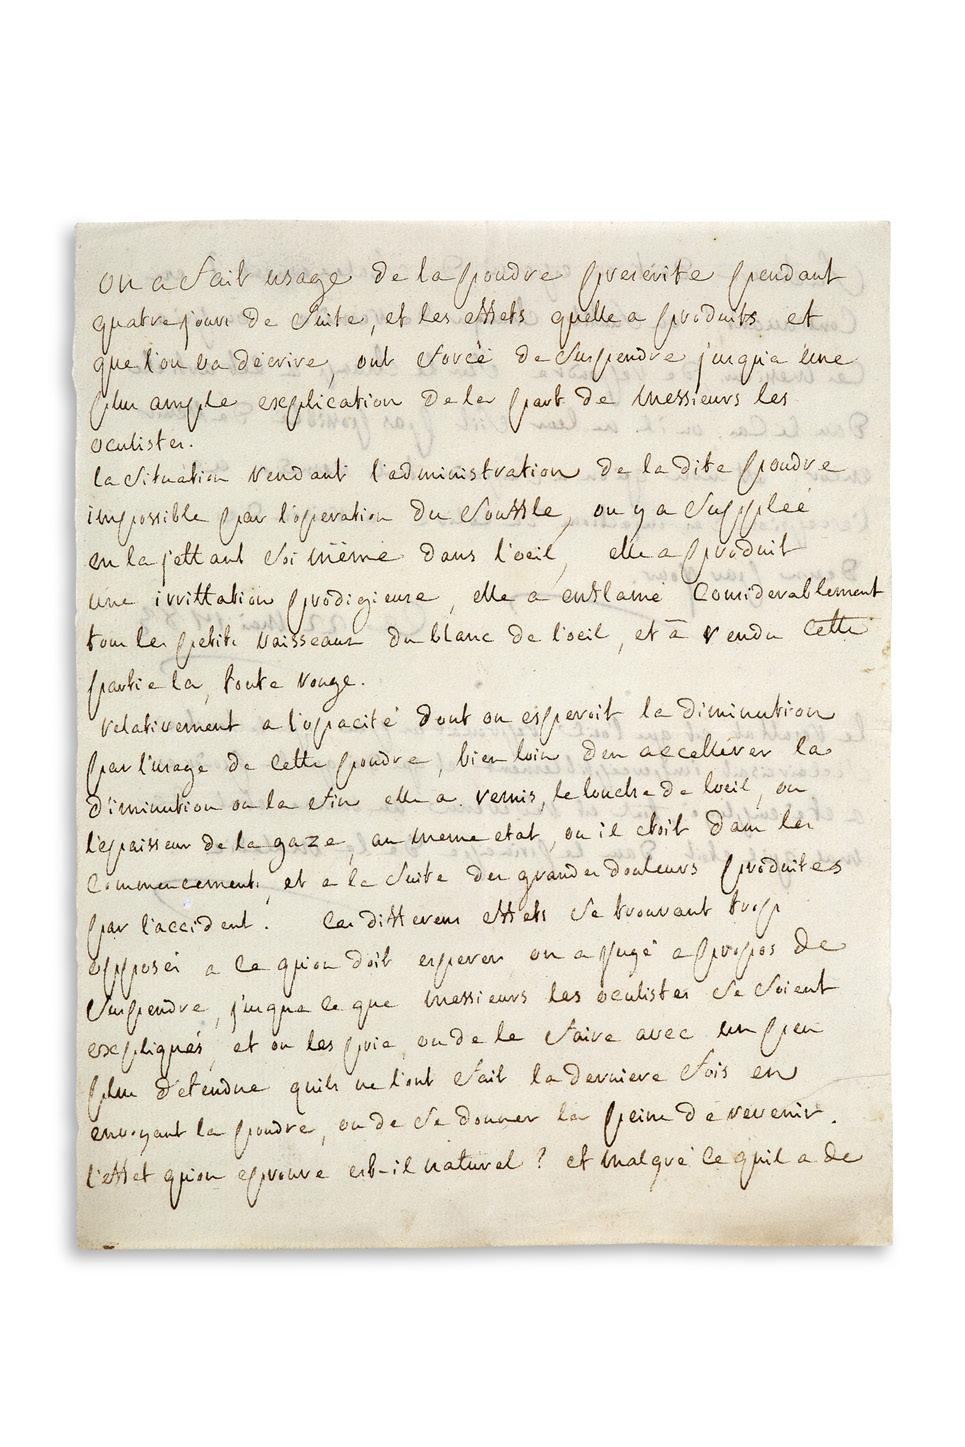 on a fait usage de la poudre prescrite pendant
quatre jours de suite, et les effets quelle a produits et
que l'on va décrire, ont forcé de suspendre jusqu'a une
plus ample explication de la part de messieurs les
oculistes.
la situation rendant l'administration de la dite poudre
impossible par l'operation du souffle, on y a suppleé
en la jettant soi même dans l'oeil, elle a produit
une irrittation prodigieuse, elle a enflamé considerablement
tous les petits vaisseaux du blanc de l'oeil, et a rendu cette
partie la, toute rouge.
relativement a l'opacité dont on esperoit la diminution
par l'usage de cette poudre, bien loin d'en accellerer la
diminution ou la fin elle a remis, le louche de l'oeil, ou
l'epaisseur de la gaze, au meme etat, ou il etoit dans les
commencements, et a la suite des grandes douleurs produites
par l'accident. ces differens effets se trouvant trop
opposés a ce qu'on doit esperer on a jugé a propos de
suspendre, jusque ce que messieurs les oculistes se soient
expliqués, et on les prie, ou de le faire avec un peu
plus d'etendue quils ne l'ont fait la derniere fois en
envoyant la poudre, ou de se donner la peine de revenir.
l'effet qu'on eprouve est-il naturel ? et malgré ce quil a de